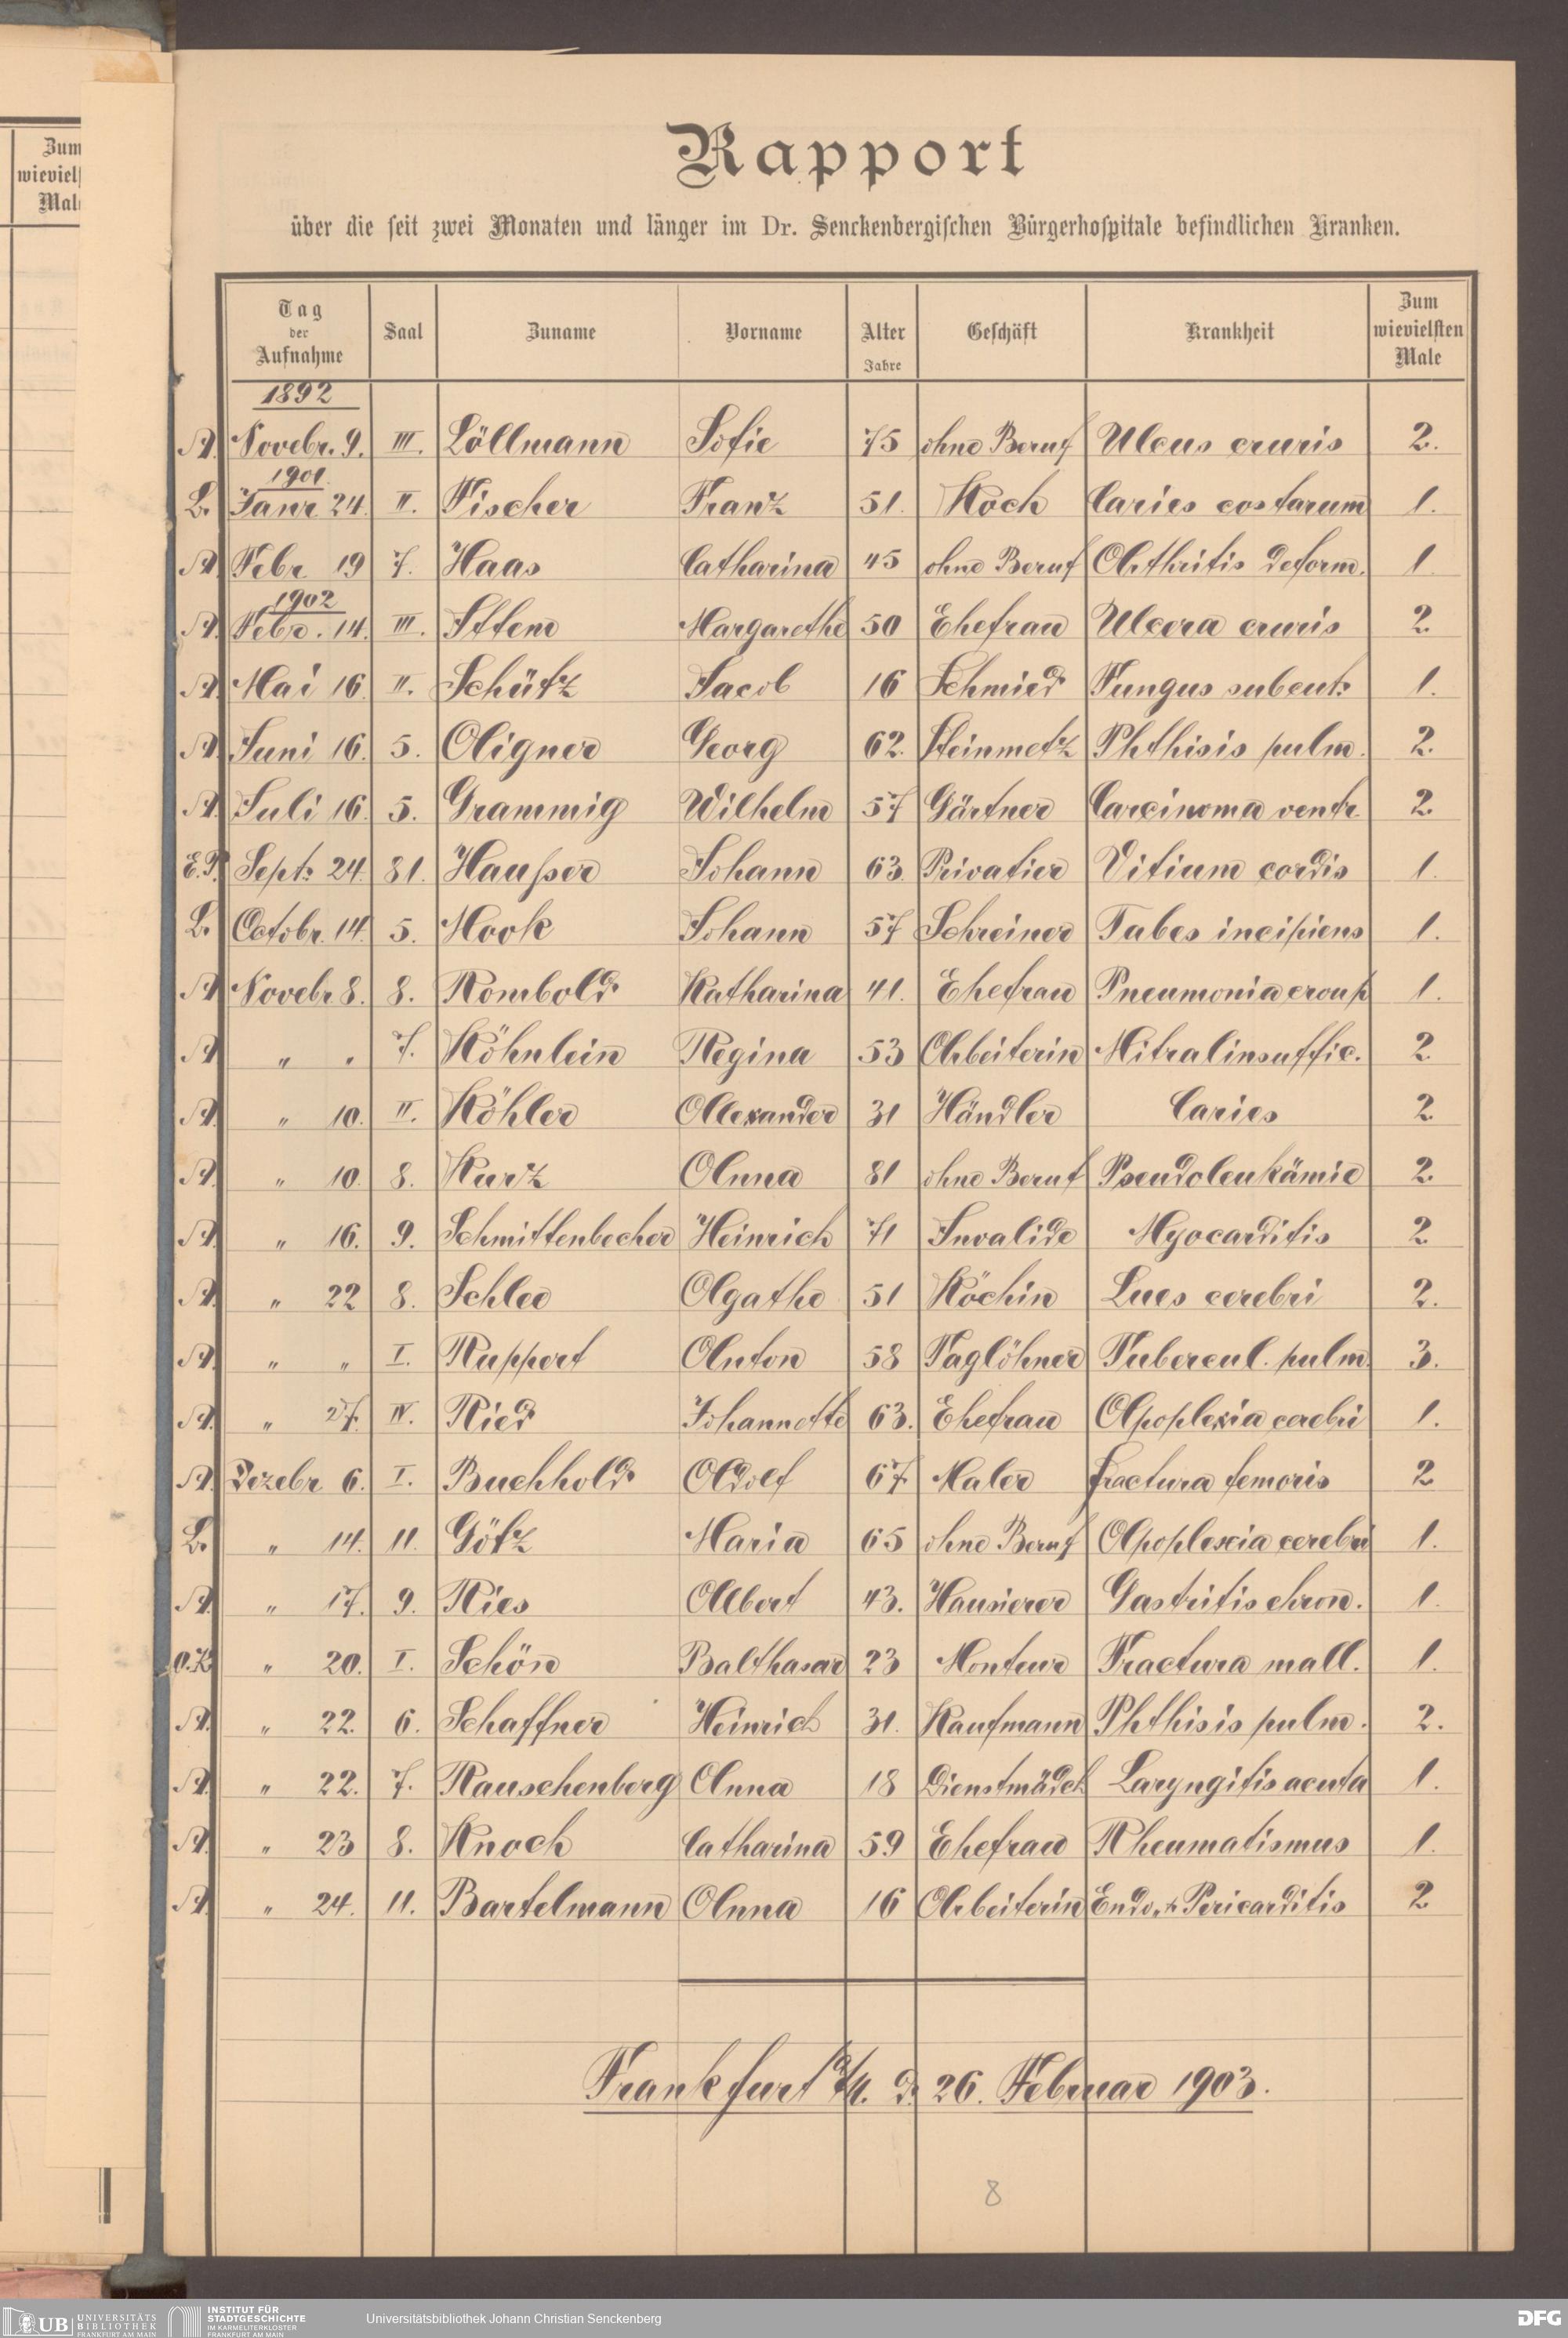 Zum
wieviel
Mal
Rapport
über die seit zwei Monaten und länger im Dr. Senckenbergischen Bürgerhospitale befindlichen Kranken.
Tag der Aufnahme Saal Zuname Vorname Alter Jahre Geschäft Krankheit Zum wievielsten Male
1892
A. Novebr. 9. III. Löllmann Sofie 75 ohne Beruf Ulcus cruris 2.
1901.
L. Janr 24. II. Fischer Franz 51. Koch Caries costarum 1.
A. Febr 19 7. Haas Catharina 45 ohne Beruf Arthritis deform. 1
1902
A. Febr. 14. III. Margarethe 50 Ehefrau Ulcera cruris 2.
A. Mai 16. II. Schütz Jacob 16 Schmied Fungus subcut: 1.
A. Juni 16. 5. Oligner Georg 62. Steinmetz Phthisis pulm. 2.
A. Juli 16. 5. Grammig Wilhelm 57 Gärtner Carcinoma ventr. 2.
E.P. Sept: 24. 81. Hausser Johann 63. Privatier Vitium cordis 1.
L. Octobr. 14. 5. Mook Johann 57 Schreiner Tabes incipiens 1.
A. Novebr 8. 8. Rombold Katharina 41. Ehefrau Pneumonia croup 1.
A. " " 7. Köhnlein Regina 53 Arbeiterin Mitralinsuffic. 2.
A. " 10. II. Köhler Alexander 31 Händler Caries 2
A. " 10. 8. Kurz Anna 81 ohne Beruf Pseudoleukämie 2.
A. " 16. 9. Schmittenbecher Heinrich 71 Invalide Myocarditis 2
A. " 22 8. Schlee Agathe 51 Köchin Lues cerebri 2.
A. " " I. Ruppert Anton 58 Taglöhner Tubercul. pulm. 3.
A. " 27. IV. Ried Johannette 63. Ehefrau Apoplexia cerebri 1.
A. Dezebr 6. I. Buchhold Adolf 67 Maler fractura femoris 2
L. " 14. 11. Götz Maria 65 ohne Beruf Apoplexia cerebri 1.
A. " 17. 9. Ries Albert 43. Hausierer Gastritis chron. 1.
O.K. " 20. I. Schön Balthasar 23 Monteur Fractura mall. 1.
A. " 22. 6. Schaffner Heinrich 31. Kaufmann Phthisis pulm. 2.
A. " 22. 7. Rauschenberg Anna 18 Dienstmädch Laryngitis acuta 1.
A. " 23 8. Knoch Catharina 59 Ehefrau Rheumatismus 1.
A. " 24. 11. Bartelmann Anna 16 Arbeiterin Endo, & Pericarditis 2
Frankfurt a/M. d. 26. Februar 1903.
8
UB UNIVERSITÄTS BIBLIOTHEK FRANKFURT AM MAIN
INSTITUT FÜR STADTGESCHICHTE IM KARMELITERKLOSTER FRANKFURT AM MAIN
Universitätsbibliothek Johann Christian Senckenberg
DFG